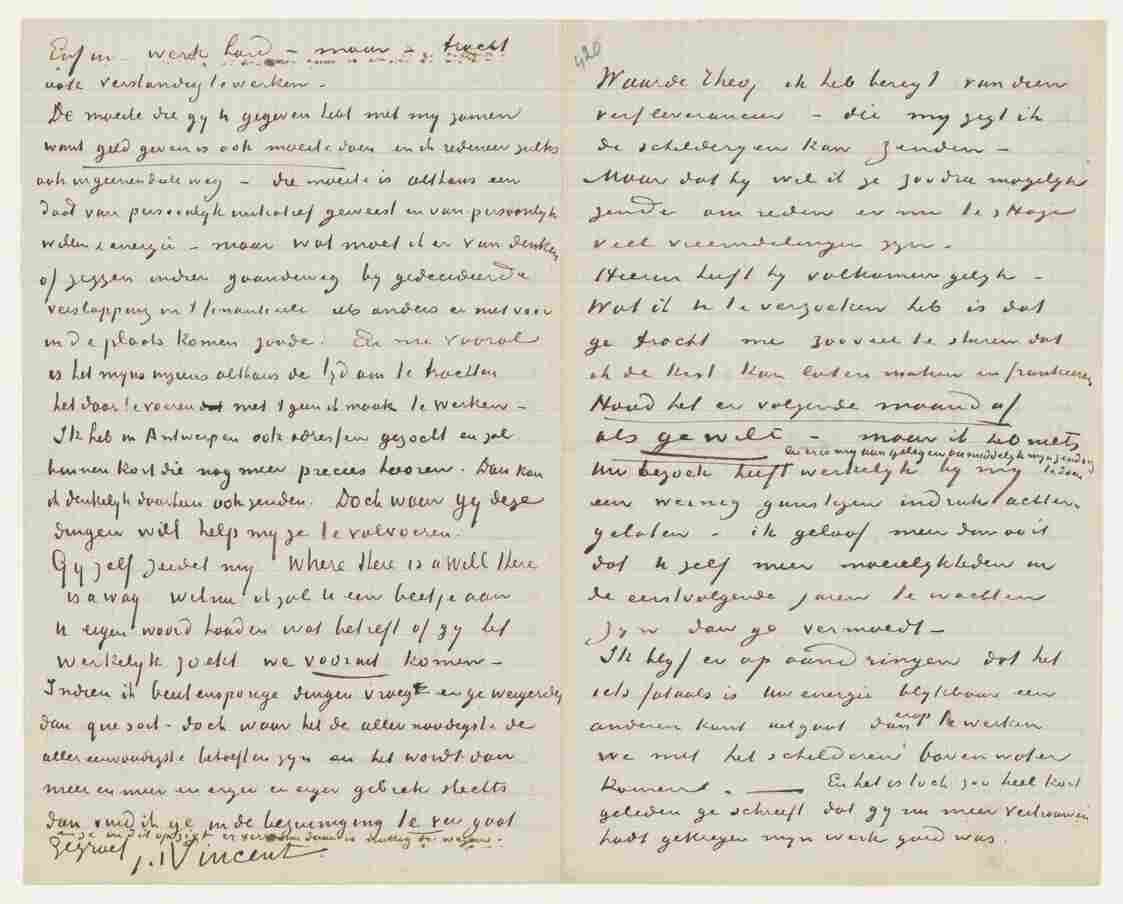 Enfin – werk hard – maar – tracht
ook verstandig te werken –
De moeite die gy U gegeven hebt met my zamen
want geld geven is ook moeite doen en ik redeneer zulks
ook in geenendeele weg – die moeite is althans een
daad van persoonlyk initiatief geweest en van persoonlyk
willen & energie – maar wat moet ik er van denken
of zeggen indien gaandeweg by gedecideerde
verslapping in 't financieele iets anders er niet voor
in de plaats komen zoude. En nu vooral
is het myns inziens althans de tyd om te trachten
het door te voeren met 't geen ik maak te werken –
Ik heb in Antwerpen ook adressen gezocht en zal
binnen kort die nog meer precies hooren. Dan kan
ik denkelyk daarheen ook zenden. Doch waar gy deze
dingen wilt help my ze te volvoeren.
Gy zelf zeidet my Where there is a will there
is a way welnu ik zal U een beetje aan
U eigen woord houden wat betreft of gy het
werkelyk zoekt we vooruit komen –
Indien ik buitensporige dingen vroeg en ge weigerdet
dan que soit – doch waar het de allernoodigste de
allereenvoudigste behoeften zyn en het wordt dan
meer en meer en erger en erger gebrek slechts
dan vind ik ge in de bezuiniging te ver gaat
en ge in dit opzigt er verre van daan is nuttig te wezen.
gegroet t. à t. Vincent
420
Waarde Theo, ik heb berigt van dien
verfleverancier – die my zegt ik
de schilderyen kan zenden –
Maar dat hy wil ik ze zoodra mogelyk
zende om reden er nu te s Hage
veel vreemdelingen zyn –
Hierin heeft hy volkomen gelyk –
Wat ik U te verzoeken heb is dat
ge tracht me zooveel te sturen dat
ik de kist kan laten maken en frankeeren
Houd het er volgende maand af
als ge wilt – maar ik heb niets
en er is my aan gelegen onmiddelyk myn zending te doen
Uw bezoek heeft werkelyk by my
een weinig gunstigen indruk achter
gelaten – ik geloof meer dan ooit
dat U zelf meer moeielykheden in
de eerstvolgende jaren te wachten
zyn dan ge vermoedt –
Ik blyf er op aandringen dat het
iets fataals is Uw energie blykbaar een
anderen kant uitgaat dan erop te werken
we met het schilderen boven water
komen. — En het is toch zoo heel kort
geleden ge schreeft dat gy nu meer vertrouwen
hadt gekregen myn werk goed was.